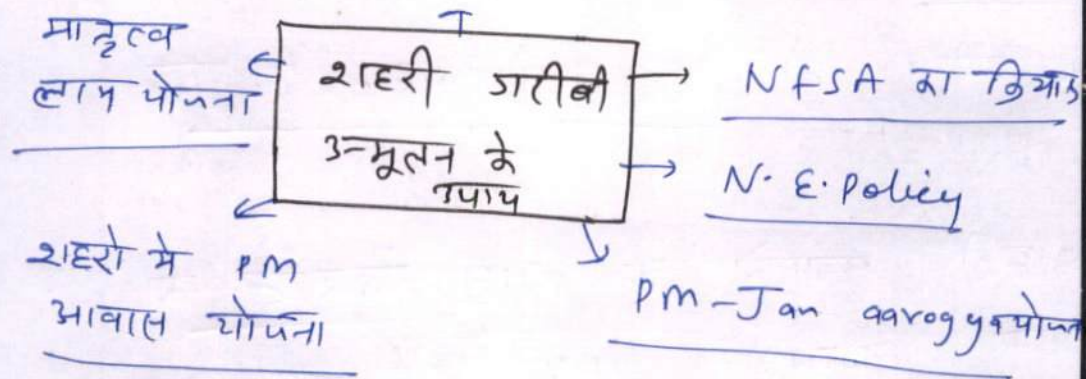 मातृत्व
लाभ योजना
शहरी गरीबी
उन्मूलन के
उपाय
NFSA का
N. E. Policy
शहरो मे PM
आवास योजना
PM-Jan aarogya योजना